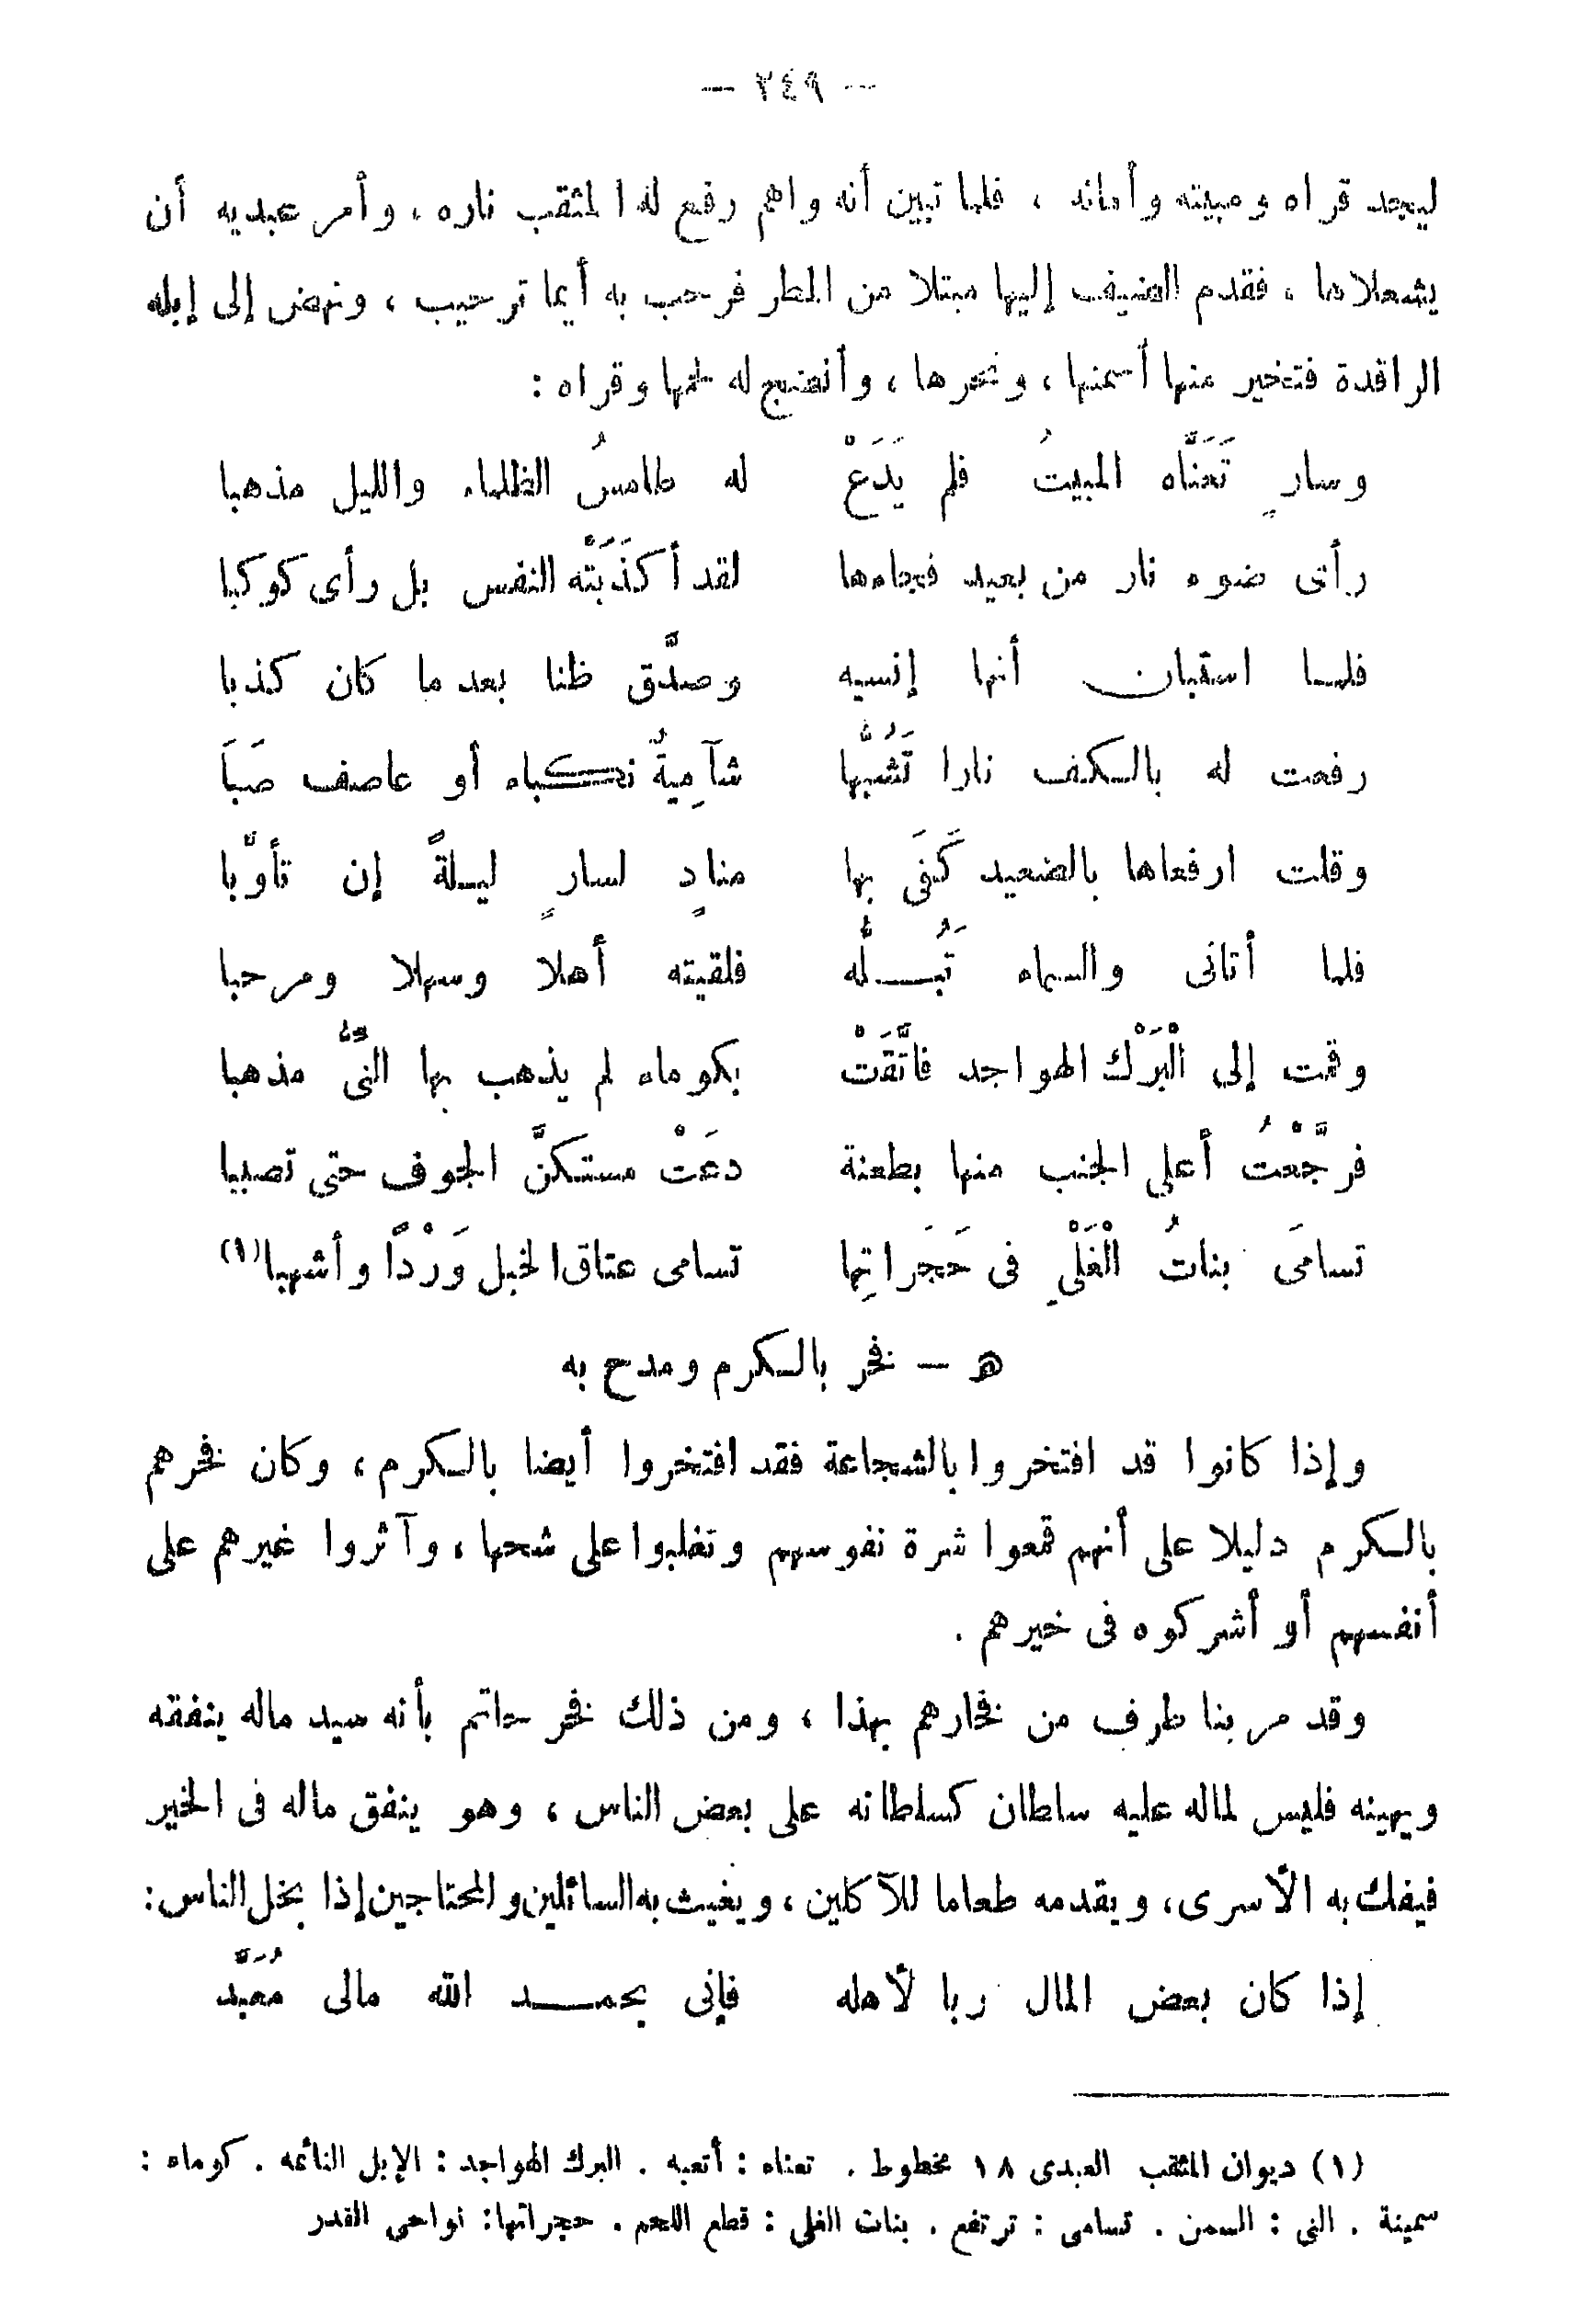 — ٢٤٩ —
ليجد قراه ومبيته وأمانه ، فلما تبين أنه واهم رفع له المثقب ناره ، وأمر عبديه أن
يشعلاها ، فقدم الضيف إليها مبتلا من المطر فرحب به أيما ترحيب ، ونهض إلى إبله
الراقدة فتخير منها أسمنها ، ونحرها ، وأنضج له لحمها وقراه :
وسارٍ تَعَنَّاه المبيتُ فلم يَدَعْ له طامسُ الظلماء والليل مذهبا
رأى ضوء نار من بعيد فجاءها لقد أكذَبَتْه النفس بل رأى كوكبا
فلما استبان أنها إنسيه وصدَّق ظنا بعد ما كان كذبا
رفعت له بالكف نارا تَشُبُّها شآمِيةٌ نكباء أو عاصف صَبَا
وقلت ارفعاها بالصعيد كَفَى بها منادٍ لسارٍ ليلةً إن تأوَّبا
فلما أتانى والسماء تَبُلُّه فلقيته أهلا وسهلا ومرحبا
وقمت إلى الْبَرْك الهواجد فاتَّقَتْ بكوماء لم يذهب بها النىُّ مذهبا
فرجَّعْتُ أعلى الجنب منها بطعنة دعَتْ مستكنَّ الجوف حتى تصببا
تسامَى بناتُ الْغَلْىِ فى حَجَراتِها تسامى عتاق الخيل وَرْدًا وأشهبا(١)
ه — فخر بالكرم ومدح به
وإذا كانوا قد افتخروا بالشجاعة فقد افتخروا أيضا بالكرم ، وكان فخرهم
بالكرم دليلا على أنهم قمعوا شرة نفوسهم وتغلبوا على شحها ، وآثروا غيرهم على
أنفسهم أو أشركوه فى خيرهم .
وقد مر بنا طرف من فخارهم بهذا ، ومن ذلك فخر حاتم بأنه سيد ماله ينفقه
ويهينه فليس لماله عليه سلطان كسلطانه على بعض الناس ، وهو ينفق ماله فى الخير
فيفك به الأسرى ، ويقدمه طعاما للآكلين ، ويغيث به السائلين والمحتاجين إذا بخل الناس :
إذا كان بعض المال ربا لأهله فإنى بحمد الله مالى مُعَبَّد
(١) ديوان المثقب العبدى ١٨ مخطوط . تعناه : أتعبه . البرك الهواجد : الإبل النائمه . كوماء :
سمينة . النى : السمن . تسامى : ترتفع . بنات الغلى : قطع اللحم . حجراتها : نواحى القدر